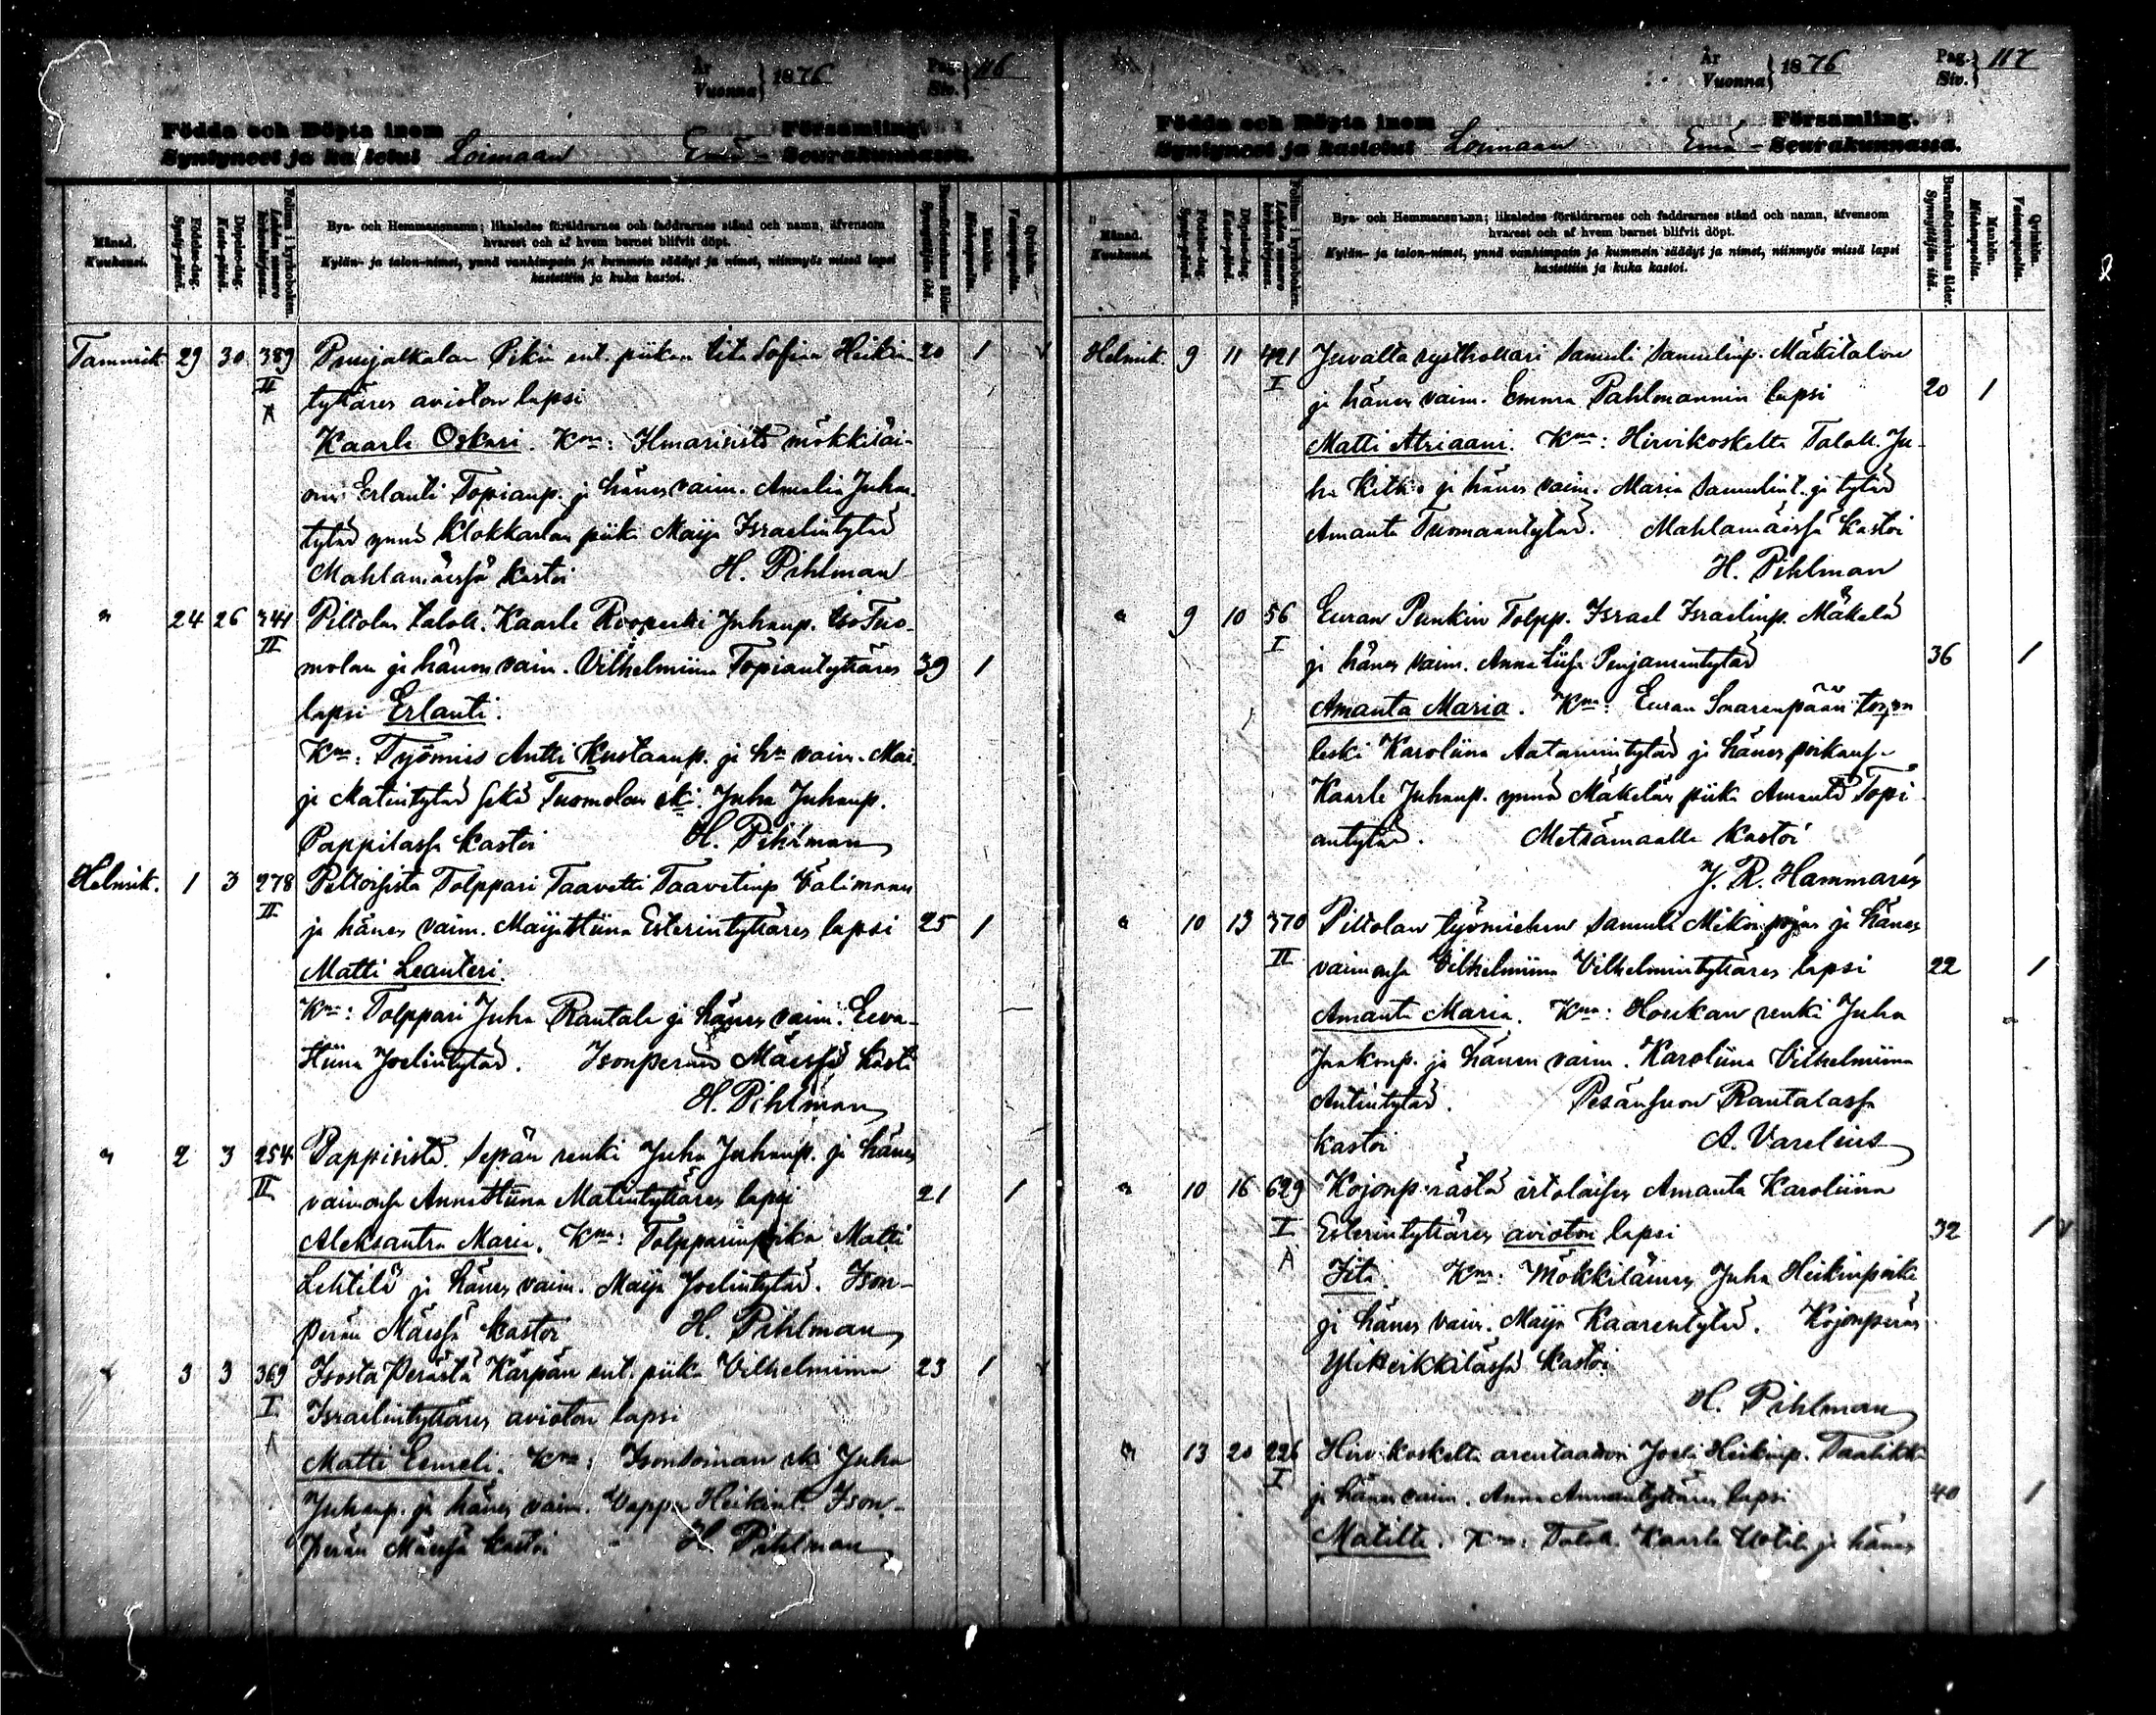 År
Vuonna } 1876
Pag.
Siv. } 116
Födda och Döpta inom Församling.
Syntyneet ja kastetut Loimaan Emä- Seurakunnassa.
Månad.
Kuukausi.
Födelse-dag.
Synty-päivä.
Döpelse-dag.
Kaste-päivä.
Folium i kyrkoboken.
Lehden numero kirkonkirjassa.
Bya- och Hemmansnamn; likaledes föräldrarnes och faddrarnes stånd och namn, äfvensom
hvarest och af hvem barnet blifvit döpt.
Kylän- ja talon-nimet, ynnä vanhimpain ja kummein säädyt ja nimet, niinmyös missä lapsi
kastettiin ja kuka kastoi.
Barnaföderskans ålder.
Synnyttäjän ikä.
Mankön.
Miehenpuolia.
Qvinkön.
Vaimonpuolia.
Tammik. 29 30 389 piikan Sofian Heikin 20 1
II tyttären avioton lapsi
A Kaarle Oskari. Kmt: mökkiläi-
Erlanti Topianp. ja hänen vaim. Amalia Juhan-
tytär ynnä Klokkarlan piika Maija Israelintytär
Mahlamäessä kastoi H. Pihlman
" 24 26 341 Piltolan talok. Kaarle Juhanp. Iso Tuo-
II molan ja hänen vaim. Vilhelmiina Topiantyttären 39 1
lapsi Erlanti.
Kmt: Työmies Antti Kustaanp. ja hn vaim. Mai-
ja Matintytär sekä Tuomolan Juha Juhanp.
Pappilassa kastoi H. Pihlman
Helmik. 1 3 278 Peltoisista Tolppari Taavetti Taavetinp. Välimaan
II ja hänen vaim. Maija Stiina Esterintyttären lapsi 25 1
Matti Leanteri.
Kmt: Tolppari Juha Rautala ja hänen vaim. Eeva-
Stiina Joelintytär. Isonperän Mäessä kastoi
H. Pihlman
" 2 3 254 Pappisista Sepän renki Juha Juhanp. ja hänen
II vaimonsa Anna Stiina Matintyttären lapsi 21 1
Aleksantra Maria. Kmt: Tolpparinpoika Matti
Lehtilä ja hänen vaim. Maija Joelintytär. Ison-
perän Mäessä kastoi H. Pihlman
" 3 3 369 Isosta Perästä Kärpän ent. piika Vilhelmiina 23 1
I Israelintyttären avioton lapsi
A Matti Eemeli. Kmt: Juha
Juhanp. ja hänen vaim. Vappu Heikint. Ison-
Perän Mäessä kastoi H. Pihlman
År
Vuonna } 1876
Pag.
Siv. } 117
Födda och Döpta inom Församling.
Syntyneet ja kastetut Loimaan Emä- Seurakunnassa.
Månad.
Kuukausi.
Födelse-dag.
Synty-päivä.
Döpelse-dag.
Kaste-päivä.
Folium i kyrkoboken.
Lehden numero kirkonkirjassa.
Bya- och Hemmansnamn; likaledes föräldrarnes och faddrarnes stånd och namn, äfvensom
hvarest och af hvem barnet blifvit döpt.
Kylän- ja talon-nimet, ynnä vanhimpain ja kummein säädyt ja nimet, niinmyös missä lapsi
kastettiin ja kuka kastoi.
Barnaföderskans ålder.
Synnyttäjän ikä.
Mankön.
Miehenpuolia.
Qvinkön.
Vaimonpuolia.
Helmik. 9 11 421 Samuli Samulinp. Mäkitalon
I ja hänen vaim. Emma Pahlmannin lapsi 20 1
Matti Atriaani. Kmt: Hirvikoskelta Talok. Ju-
ha ja hänen vaim. Maria Samulint. ja tytär
Amanta Tuomaantytär. Mahlamäessä kastoi
H. Pihlman
" 9 10 56 Euran Punkin Tolpp. Israel Israelinp. Mäkelä
I ja hänen vaim. Anna Liisa Penjamintytär 36 1
Amanta Maria. Kmt: Euran Saarenpään
leski Karoliina Aatamintytär ja hänen poikansa
Kaarle Juhanp. ynnä Mäkelän piika Amanta Topi-
antytär. Metsämaalla kastoi
J. R. Hammarén
" 10 13 370 Piltolan työmiehen Samuli Mikonpojan ja hänen
II vaimonsa Vilhelmiina Vilhelmintyttären lapsi 22 1
Amanta Maria. Kmt: renki Juha
Jaakonp. ja hänen vaim. Karoliina Vilhelmiina
Antintytär. Pesänsuon Rautalassa
kastoi A. Varelius
" 10 16 629 Kojonperästä irtolaisen Amanta Karoliina
I Esterintyttären avioton lapsi 32 1
A Iita. Kmt: Mökkiläinen Juha Heikinpoika
ja hänen vaim. Maija Kaarentytär. Kojonperän
Yliheikkilässä kastoi
H. Pihlman
" 13 20 226 Hirvikoskelta arentaattori Heikinp.
I ja hänen vaim. Anna lapsi 40 1
Matilta. Kmt: Talok. Kaarle Uotila ja hänen